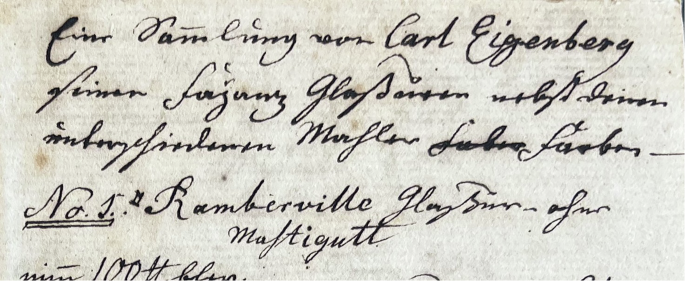 Eine Sam̄lung von Carl Eigenberg
seinen Fäÿanz Glaßuren nebst denen
unterschiedenen Mahler Farben
No. 1. Ramberville Glaßur ohne
Mastigutt
nim 100 ℔ bley